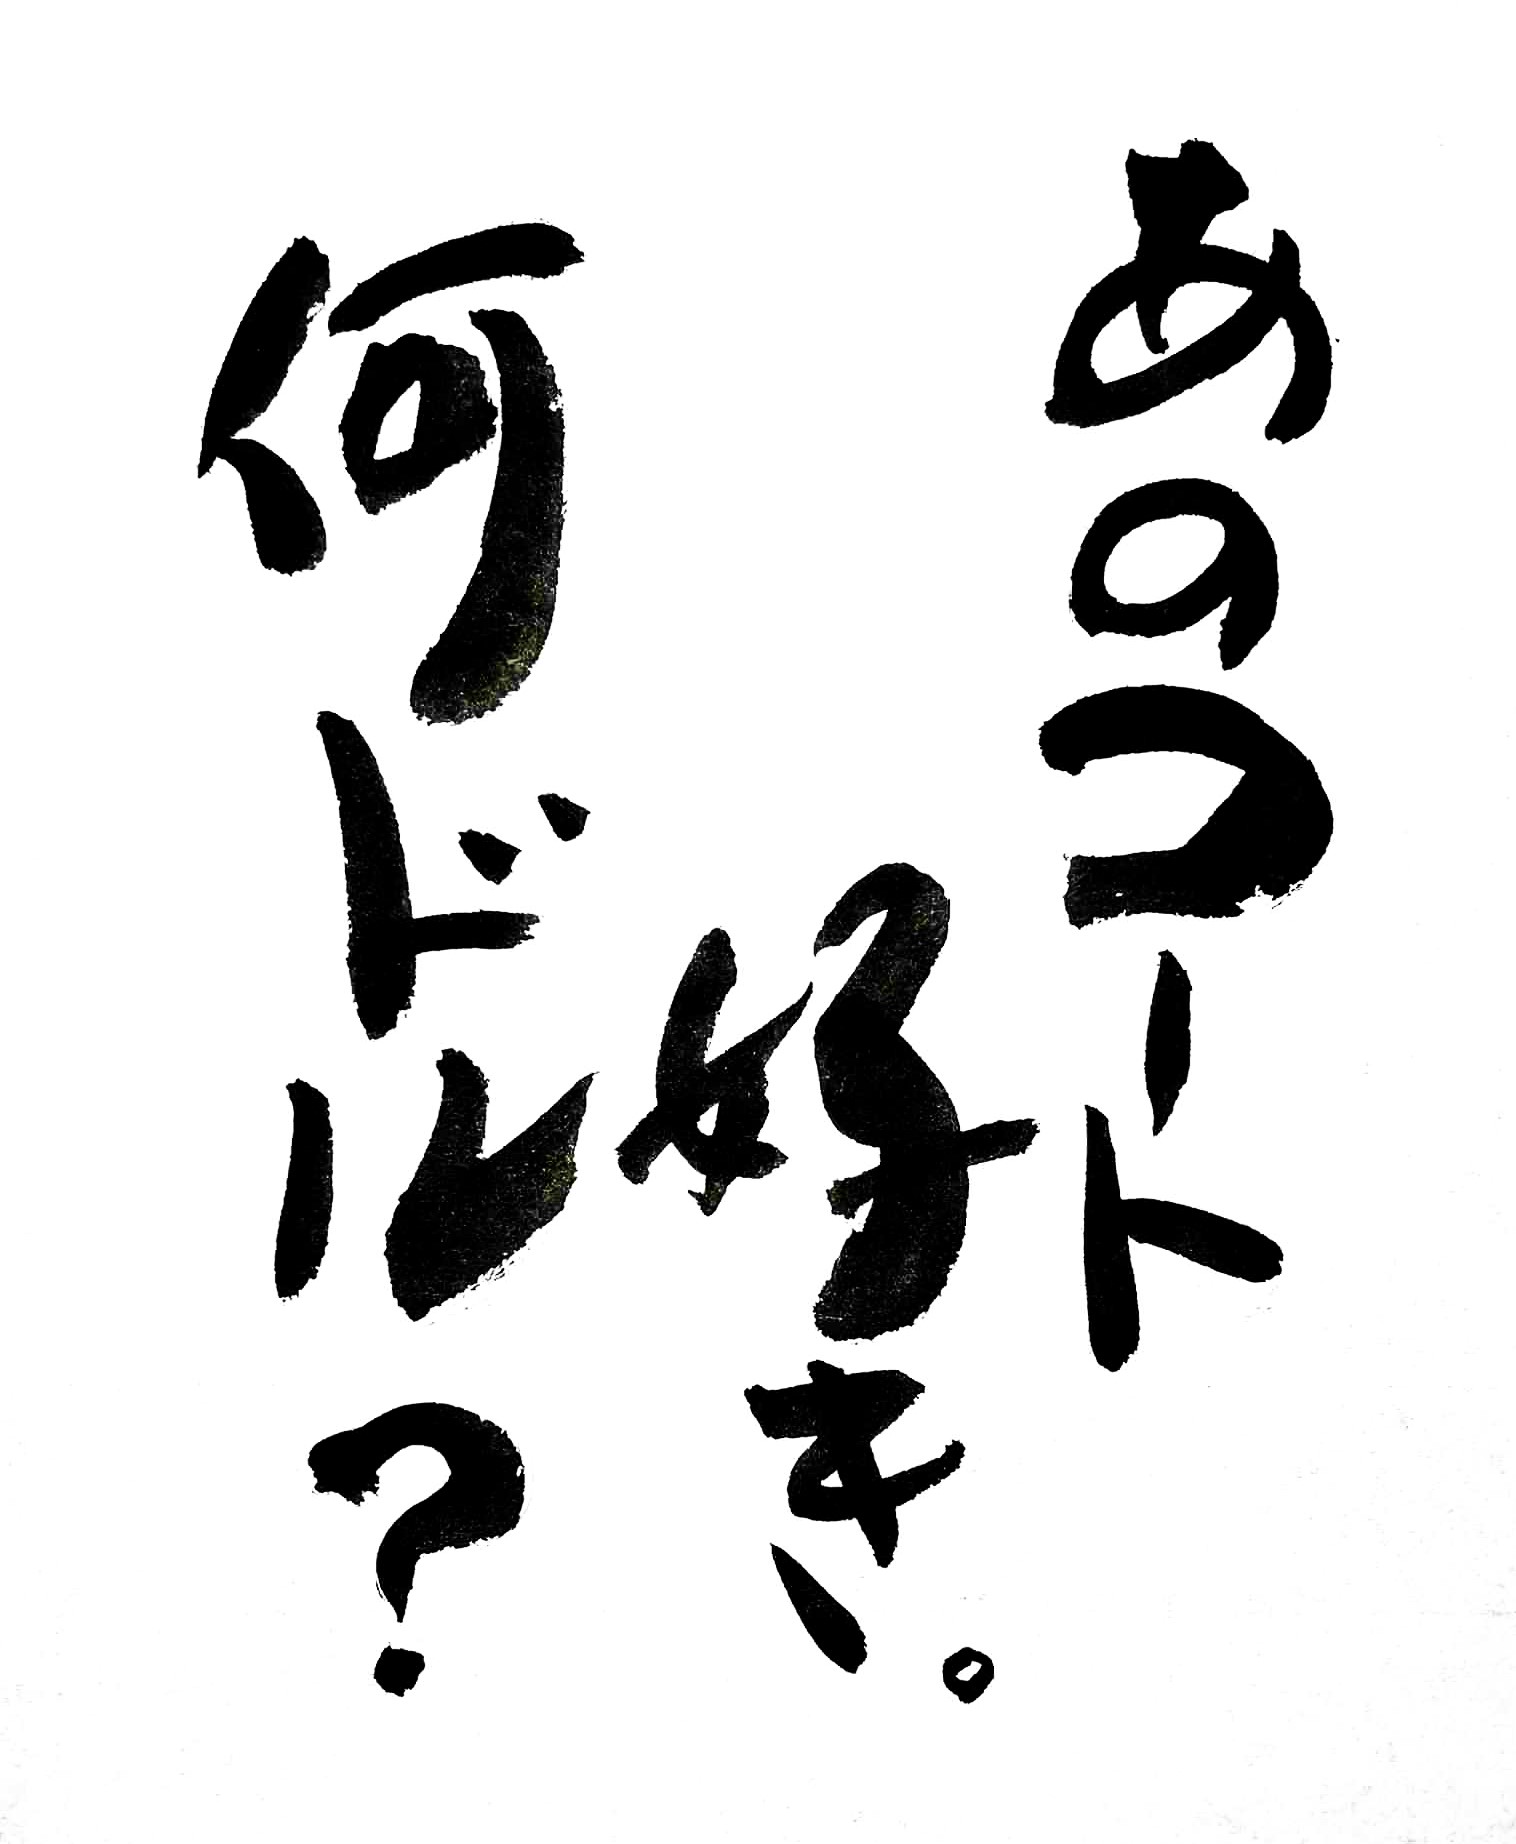 あのコート
好き。
何ドル？